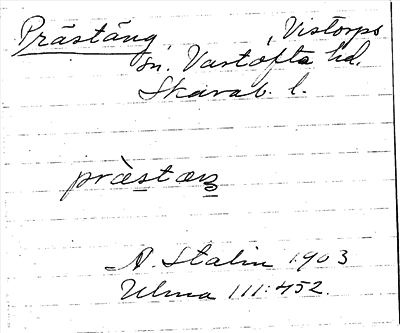 Prästäng, Vistorps
sn. Vartofta hd.
Skarab. l.
præ̀stæŋ
A. Stalin 1903
Ulma 111:452.